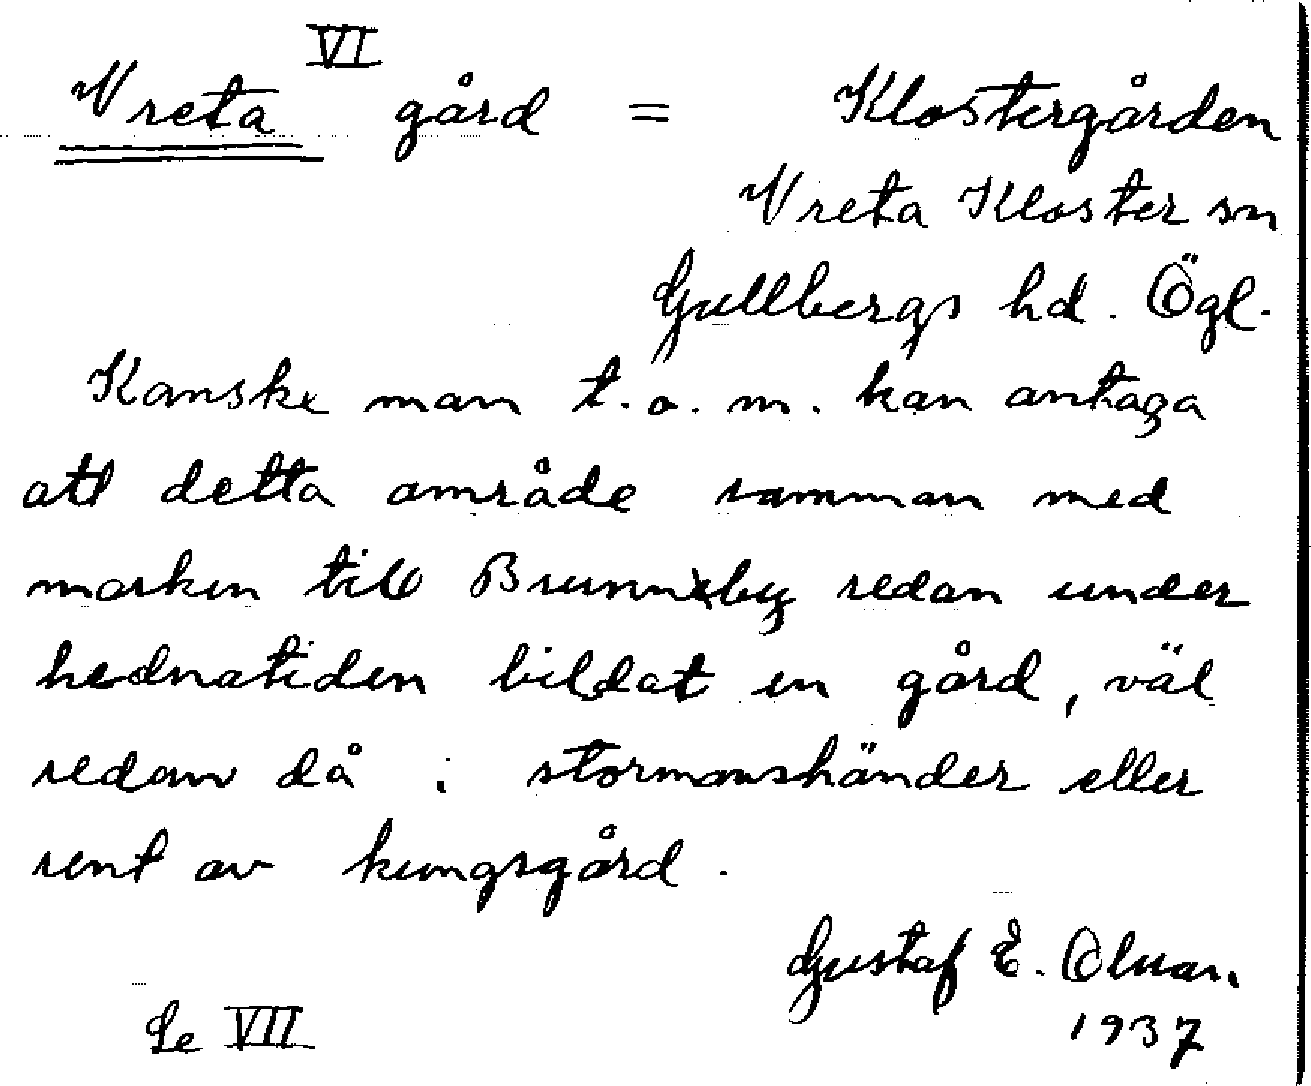 VI
Vreta gård = Klostergården
Vreta Kloster sn
Gullbergs hd. Ögl.
Kanske man t.o.m. kan antaga
att detta område samman med
marken till Brunnby redan under
hednatiden bildat en gård, väl
redan då i stormanshänder eller
rent av kungsgård.
Gustaf E.
1937
Se VII